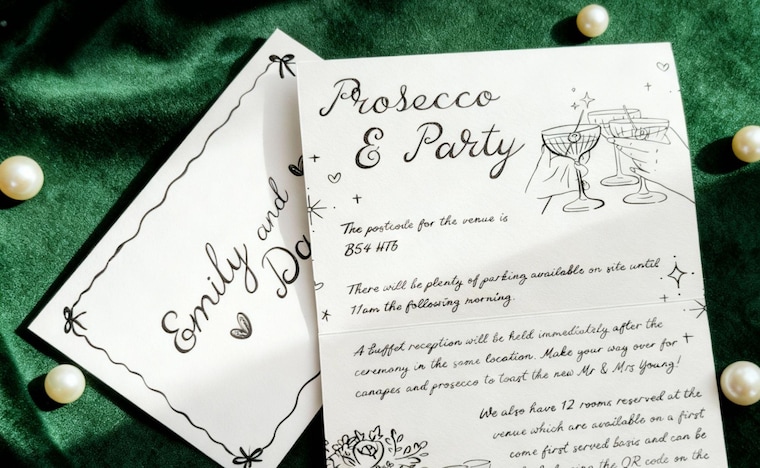 Emily and
Da
Prosecco
& Party
The postcode for the venue is
B54 HT6
There will be plenty of parking available on site until
11am the following morning.
A buffet reception will be held immediately after the
ceremony in the same location. Make your way over for
canapes and prosecco to toast the new Mr & Mrs Young!
We also have 12 rooms reserved at the
venue which are available on a first
come first served basis and can be
the QR code on the